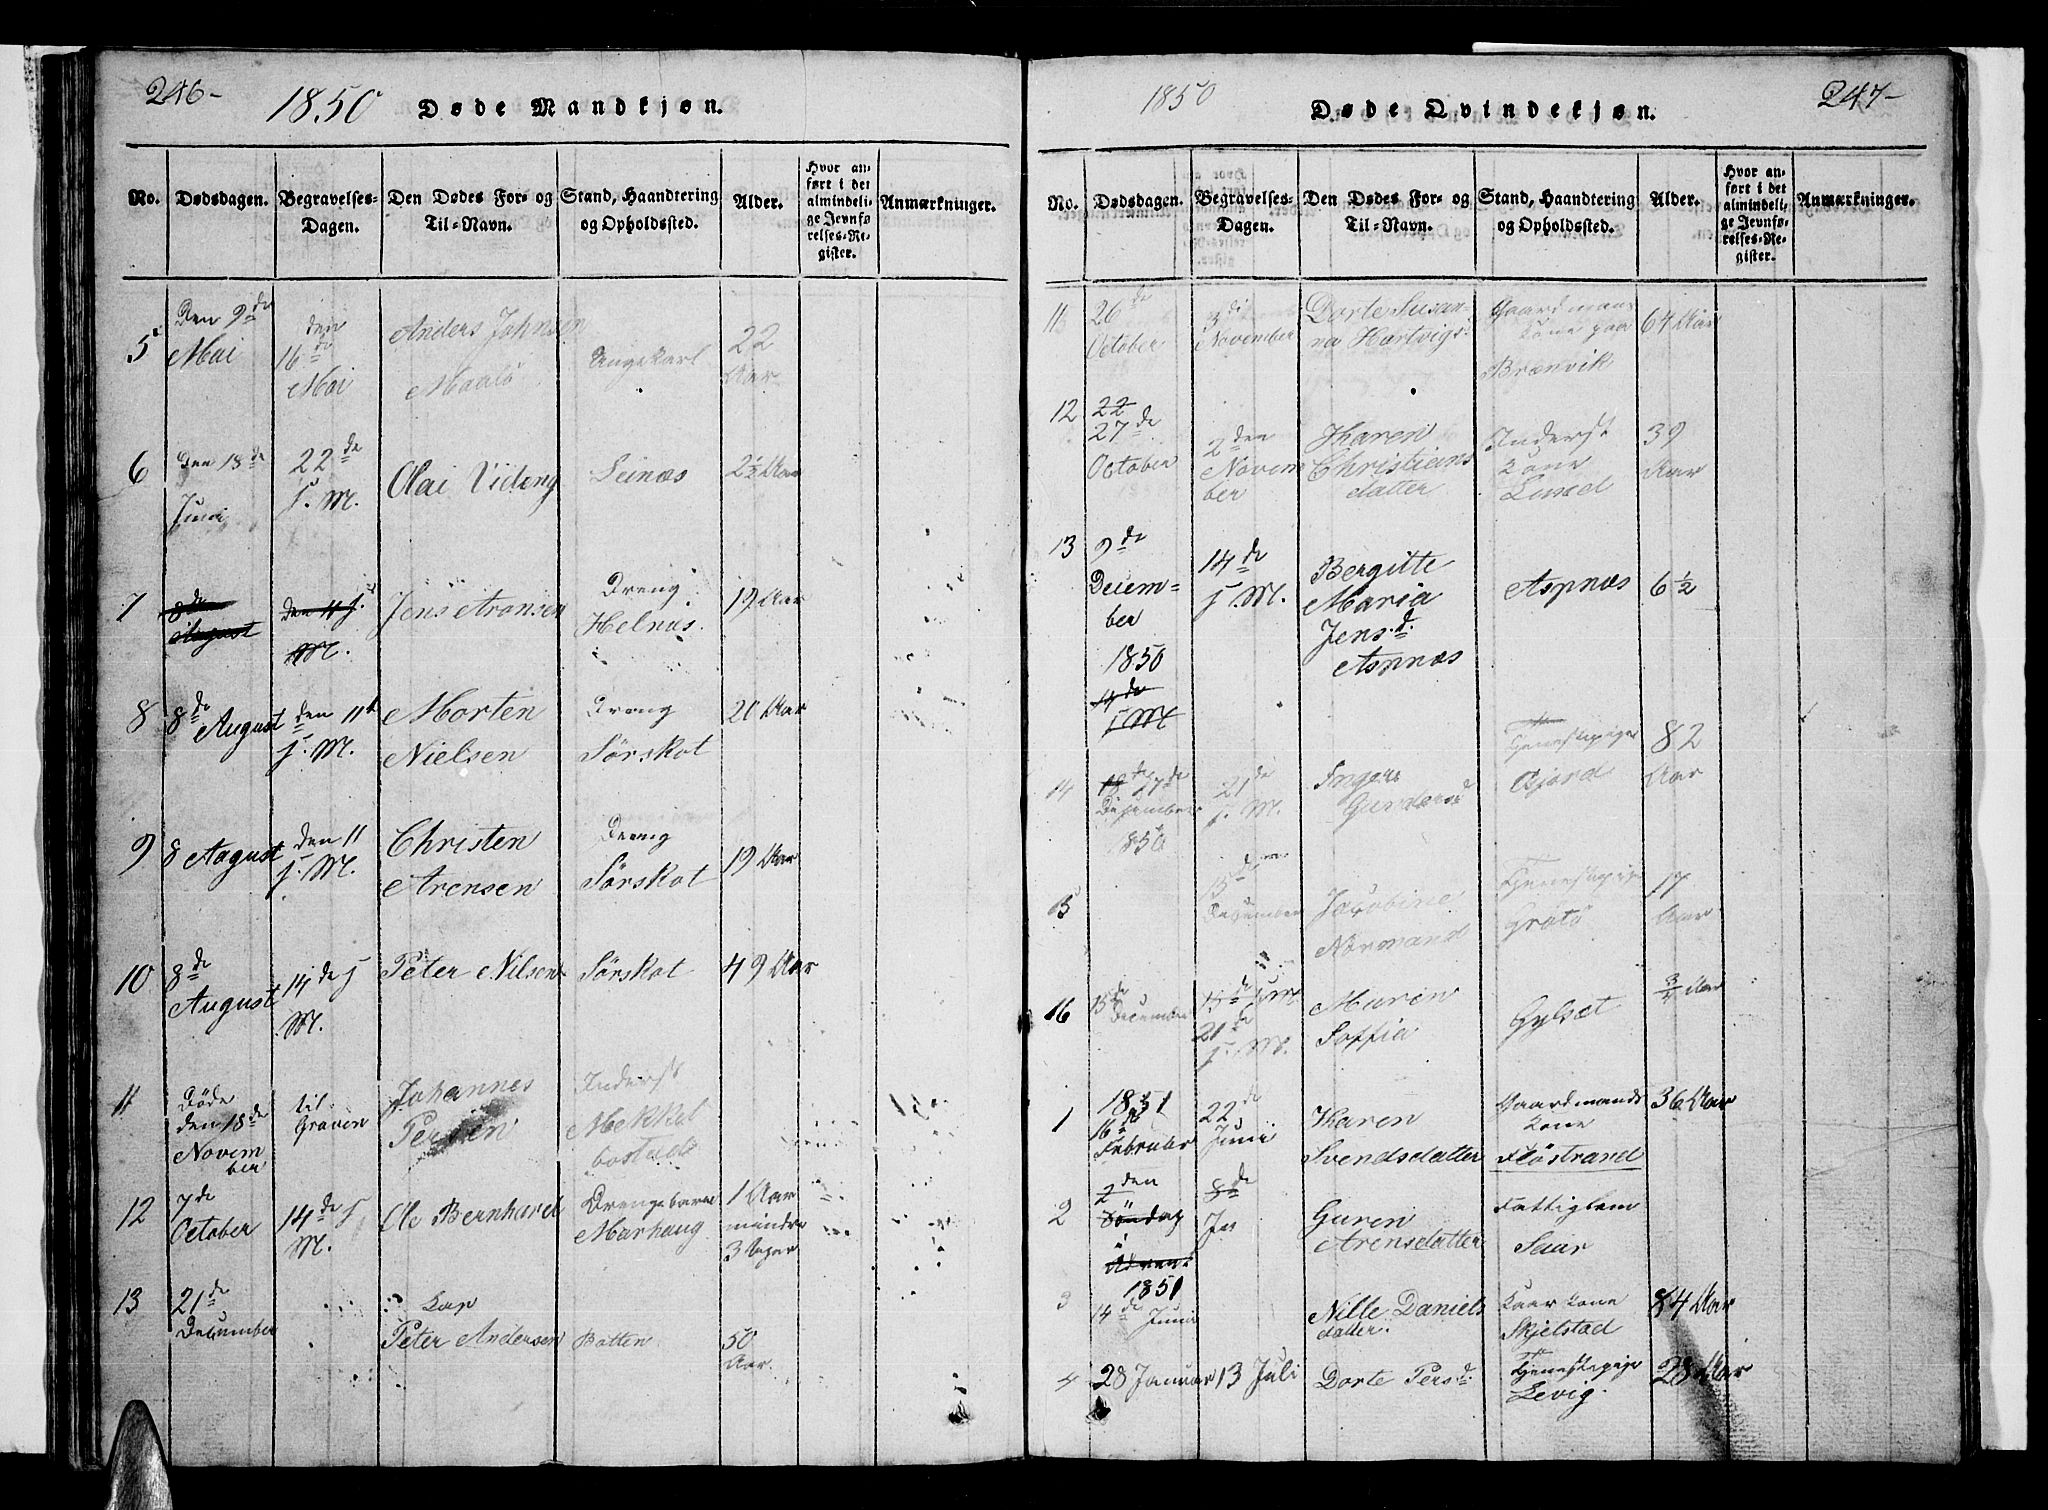 246-
1850 Døde Mandkjøn.
No. Dødsdagen. Begravelses-Dagen. Den Dødes For- og Til-Navn. Stand, Haandtering og Opholdssted. Alder. Hvor anført i det almindelige Jevnførelses-Register. Anmærkninger.
5 Den 9de Mai den 16de Mai Anders Johnsen Maalö Ungekarl 22 Aar
6 Den 18de Juni 22de s. M. Olai Leinæs 2½ Aar
7 8de August den 11 s. M. Jens Aronsen Dreng Helnæs 19 Aar
8 8de August den 11te s. M. Morten Nielsen Dreng Sörskot 20 Aar
9 8 August den 11 s. M. Christen Arensen Dreng Sörskot 19 Aar
10 8de August 14de s M. Peter Nilsen Sörskot 49 Aar
11 Döde den 18de November til Graven Johannes Persen Inderst
12 7de October 14de s M. Ole Bernhard Drengebarn Marhaug 1 Aar mindre 3 Uger
13 21de December Lap Peter Andersen Batten 50 Aar.
1850 Døde Qvindekjøn.
247-
No. Dødsdagen. Begravelses-Dagen. Den Dødes For- og Til-Navn. Stand, Haandtering og Opholdssted. Alder. Hvor anført i det almindelige Jevnførelses-Register. Anmærkninger.
11 26de October 3di November Dorte Susanna Hartvigs. Gaardmans Kone paa Brænvik 64 Aar
12 22 27de October 2den November Karen Christiansdatter Inderst Kone 39 Aar
13 9de December 1850 14de s. M. Bergitte Maria Jens.d. Aspnæs Aspnæs 6½
4de s M
14 18de 17de December 1850 21de s. M. Tjenestepige 82 Aar
15 December Jacobine Normand Tjenestepige Grötö 17 Aar
16 15de December 15de s M 21de s. M. Maren Soffia Gylset ¾ Aar
1 1851 16de Februar 22de Juni Karen Svendsdatter Gaardmands Kone Flöstrand 36 Aar
2 2den Söndag i Adven. 8de Guren Arensdatter Fattiglem Saur
3 1851 14de Juni Nille Danielsdatter. Kaarkone Skjelstad 84 Aar
4 28 Januar 13 Juli Dorte Pers.d. Tjenestepige Levig. 28 Aar